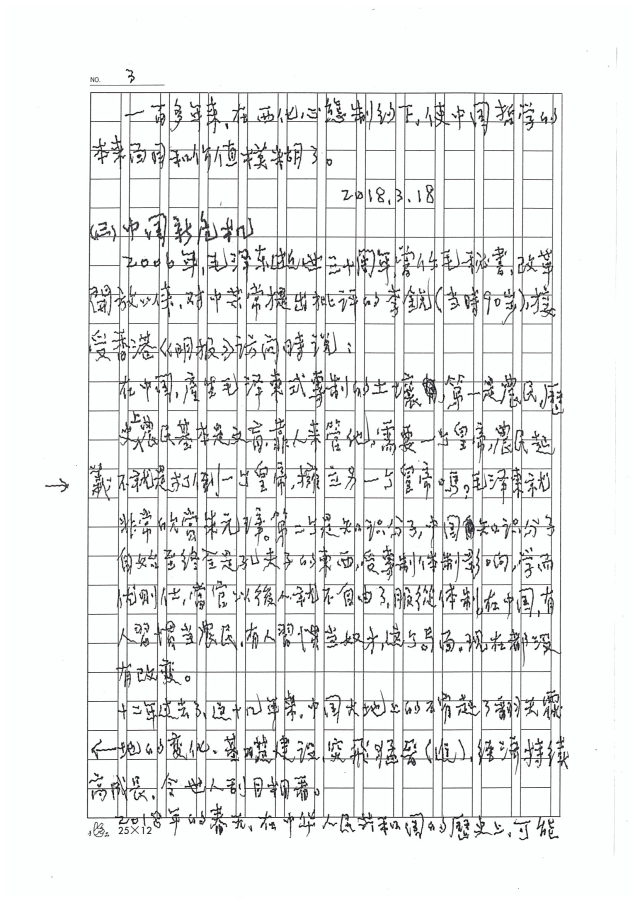 NO. 3
一百多年来,在西化心態制約下,使中国哲学的
本来面目和价值模糊了。
2018.3.18
(三)中国新危机
2006年,毛泽东逝世三十周年,曾任毛秘書,改革
開放以後,对中共常提出批评的李銳(当時90岁),接
受香港《明报》访问時说:
在中国,產生毛泽東式專制的土壤,第一是農民,歷
史上農民基本是文盲,靠人来管他,需要一个皇帝,農民起
→ 義不就是打倒一个皇帝,擁立另一个皇帝嗎。毛泽東就
非常欣赏朱元璋。第二个是知识分子,中国知识分子
自始至终全是孔夫子的東西,受專制体制影响,学而
优则仕,當官以後人就不自由了,服從体制。在中国,有
人習慣当農民,有人習慣当奴才,這个局面,现在都没
有改变。
十二年过去了,这十几年来,中国大地上的确有起了翻天覆
地的变化。基礎建设,突飛猛晉(進),经济持续
高成長,令世人刮目相看。
2018年的春天,在中华人民共和国的歷史上,可能
25×12